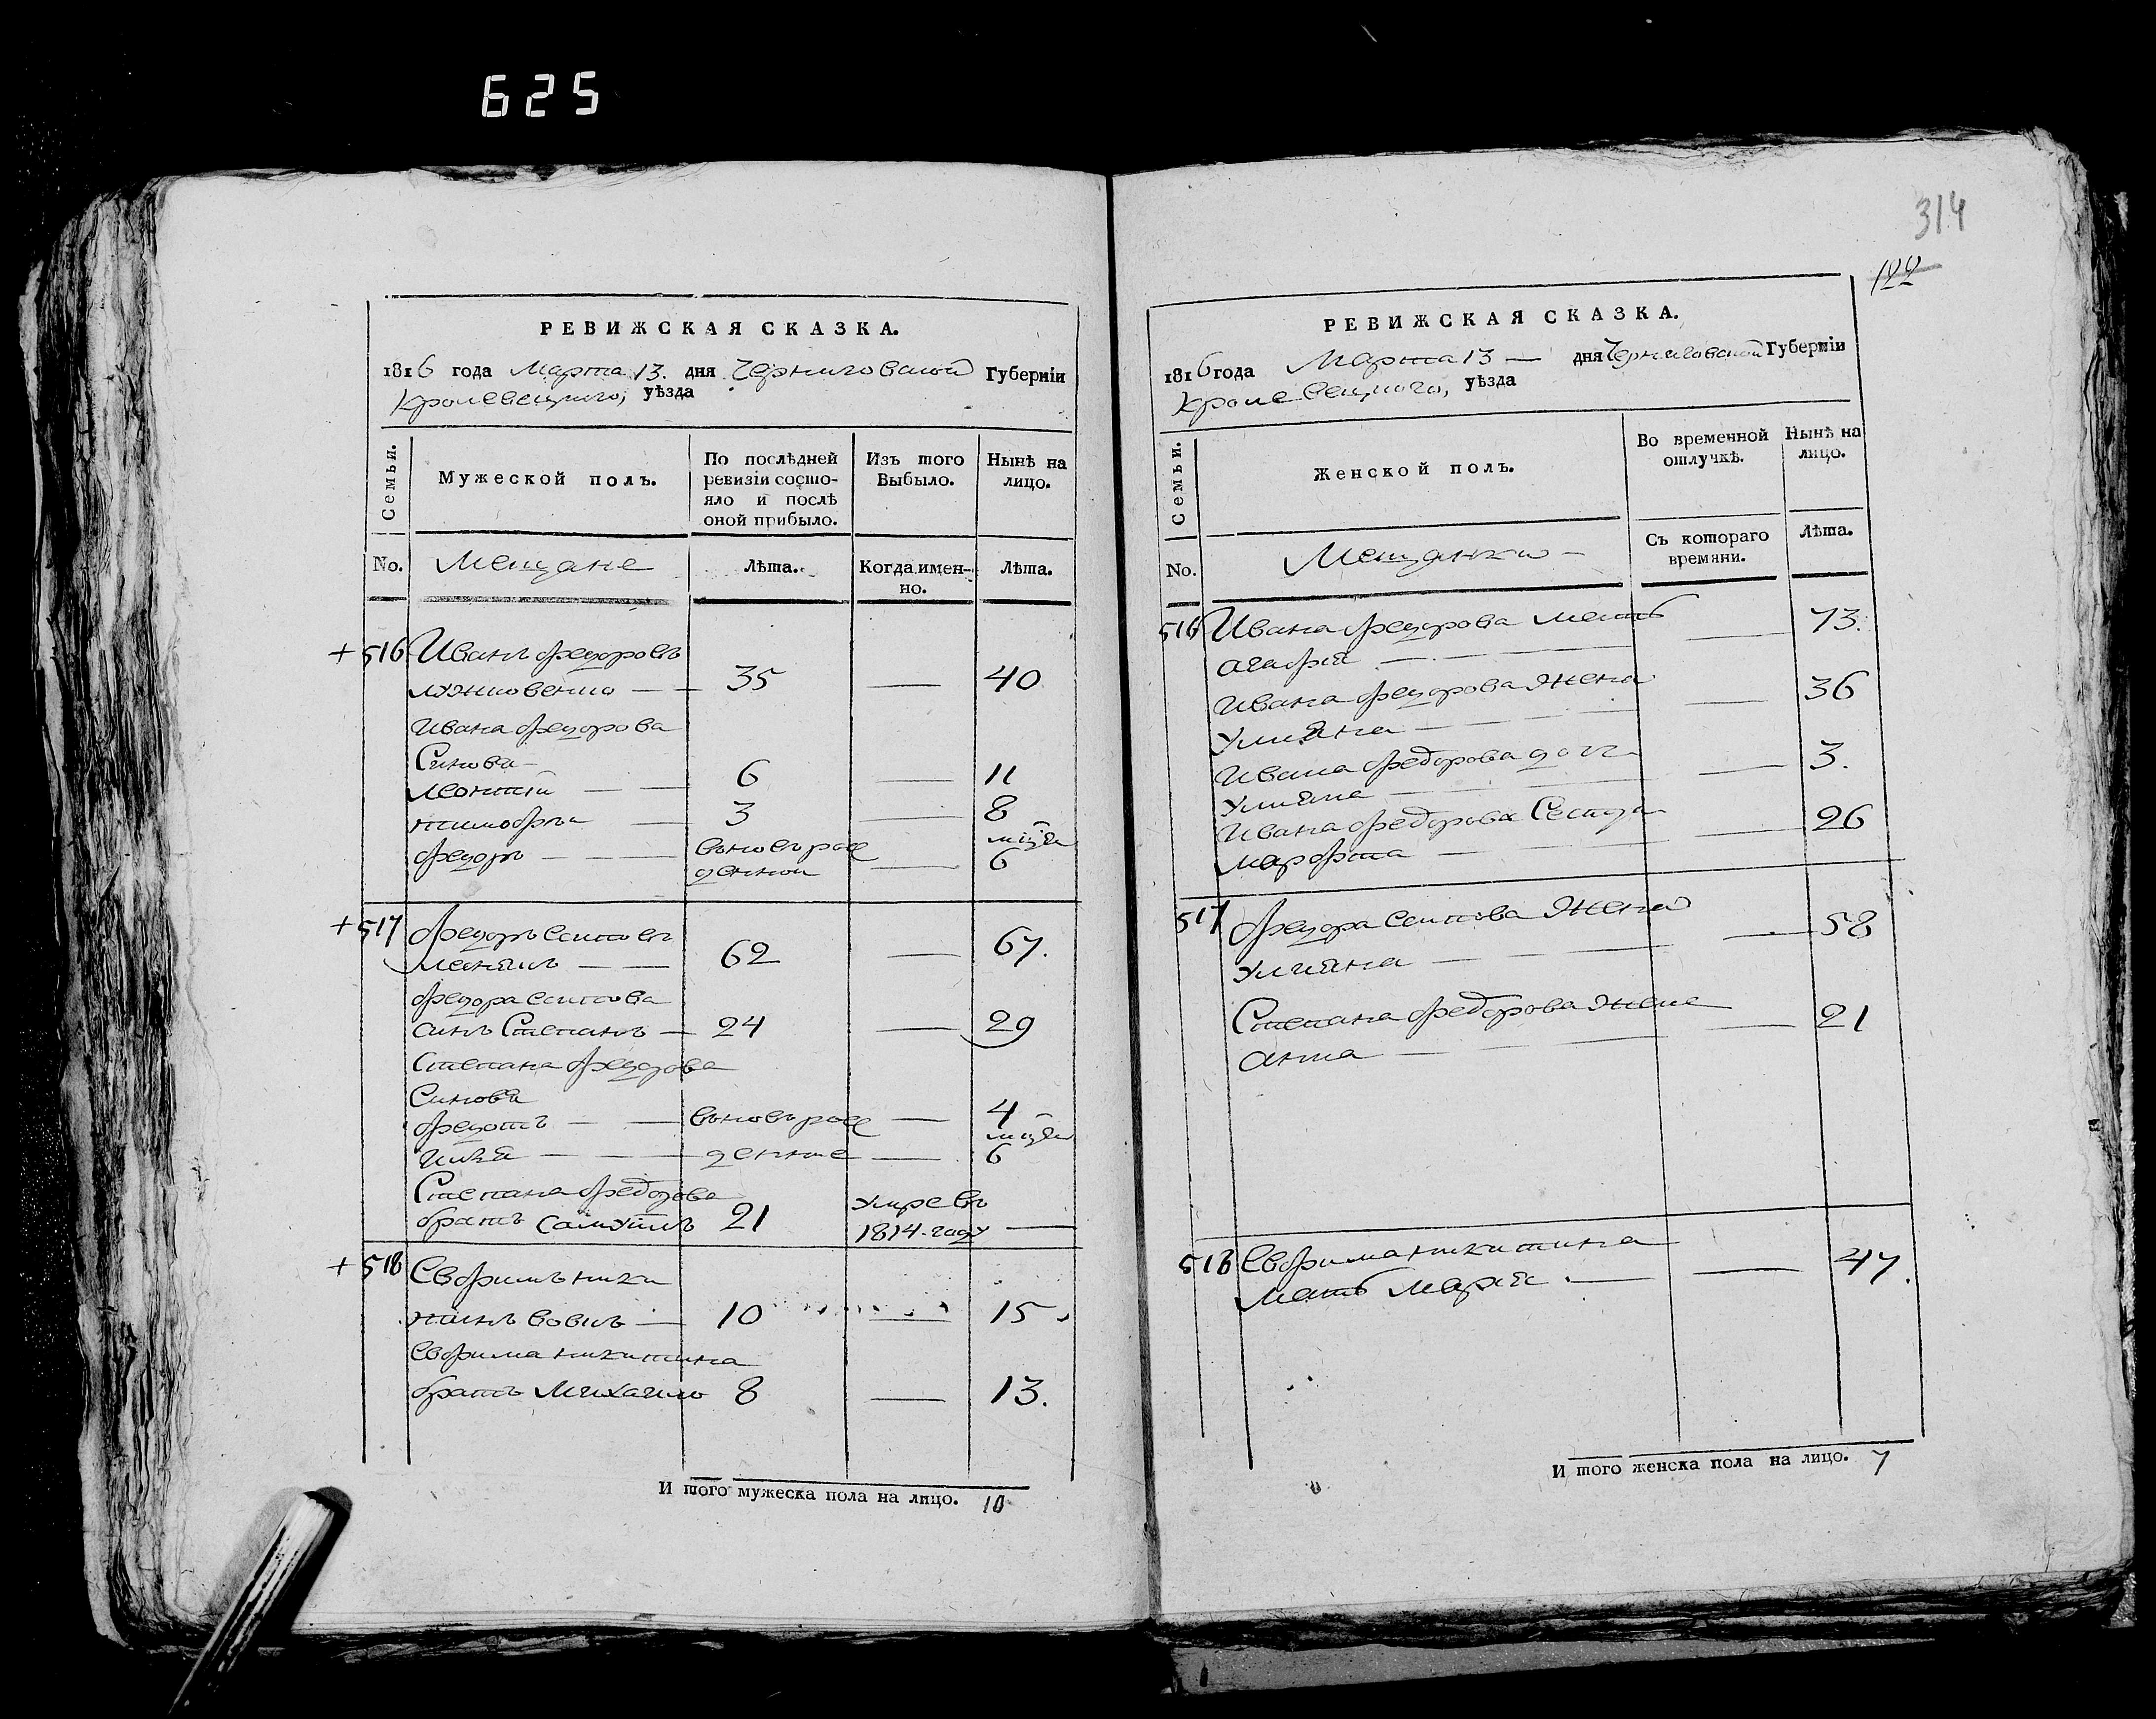 625
РЕВИЖСКАЯ СКАЗКА.
1816 года Марта 13. дня Черниговской Губерніи
Кролевецкого, уѣзда
Семьи.
Мужеской полъ.
По послѣдней ревизіи состо-
яло и послѣ
оной прибыло.
Изъ того
Выбыло.
Нынѣ на
лицо.
No.
Мещане
Лѣта.
Когда имен-
но.
Лѣта.
+516 Иванъ Федоровъ
35 — 40
Ивана Федорова
Синови
Леонтій — 6 — 11
Тимофѣй — 3 — 8
Федоръ — вновь рож
денной — мцы 6
+517 Федоръ
62 — 67.
Федора
синъ Степанъ — 24 — 29
Степана Федорова
Синови
Федотъ — вновь рож — 4
Илія — денние — мцы 6
Степана Федорова
братъ Самуилъ 21 умре въ
1814. году —
+518 Евфимъ Ники
тинъ — 10 — 15
Евфима Никитина
братъ Михаило 8 — 13.
И того мужеска пола на лицо. 10
314
122
РЕВИЖСКАЯ СКАЗКА.
1816 года Марта 13 — дня Черниговской Губерніи
Кролевецкого, уѣзда
Семьи.
Женской полъ.
Во временной
отлучкѣ.
Нынѣ на
лицо.
No.
Мещанки —
Съ котораго
времяни.
Лѣта.
516 Ивана Федорова мать
Агафія — 73.
Ивана Федорова жена
Уліяна — 36
Ивана Федорова дочь
Уліяна — 3.
Ивана Федорова Сестра
Марфа — 26
517 Федора жена
Уліяна — 58
Степана Федорова жена
Анна — 21
518 Евфима Никитина
мать Марія — 47.
И того женска пола на лицо. 7